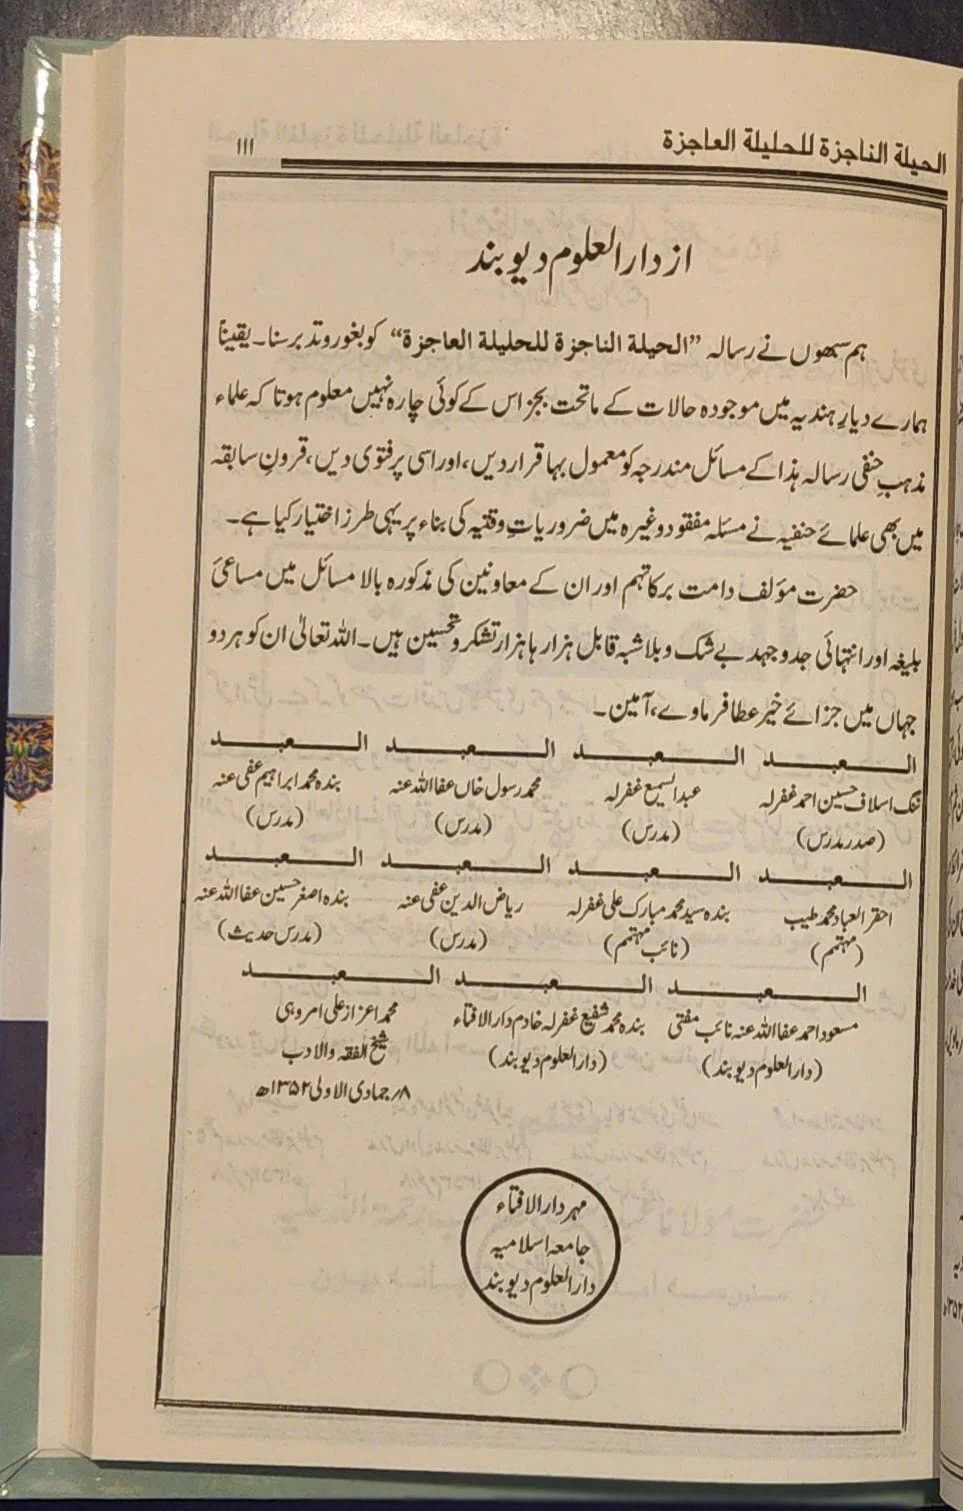 الحیلة الناجزة للحلیلة العاجزة
۱۱۱
از دارالعلوم دیوبند
ہم سبھوں نے رسالہ ”الحیلة الناجزة للحلیلة العاجزة“ کو بغور و تدبر سنا۔ یقیناً
ہمارے دیارِ ہندیہ میں موجودہ حالات کے ماتحت بجز اس کے کوئی چارہ نہیں معلوم ہوتا کہ علماء
مذہبِ حنفی رسالہ ہذا کے مسائل مندرجہ کو معمول بہا قرار دیں، اور اسی پر فتویٰ دیں، قرونِ سابقہ
میں بھی علمائے حنفیہ نے مسئلہ مفقود وغیرہ میں ضروریاتِ وقتیہ کی بناء پر یہی طرز اختیار کیا ہے۔
حضرت مؤلف دامت برکاتہم اور ان کے معاونین کی مذکورہ بالا مسائل میں مساعیٔ
بلیغہ اور انتہائی جدوجہد بے شک و بلاشبہ قابل ہزارہا ہزار تشکر و تحسین ہیں۔ اللہ تعالیٰ ان کو ہر دو
جہاں میں جزائے خیر عطا فرماوے، آمین۔
العبد العبد العبد العبد
ننگ اسلاف حسین احمد غفرلہ عبدالسمیع غفرلہ محمد رسول خاں عفا اللہ عنہ بندہ محمد ابراہیم عفی عنہ
(صدر مدرس) (مدرس) (مدرس) (مدرس)
العبد العبد العبد العبد
احقر العباد محمد طیب بندہ سید محمد مبارک علی غفرلہ ریاض الدین عفی عنہ بندہ اصغر حسین عفا اللہ عنہ
(مہتمم) (نائب مہتمم) (مدرس) (مدرس حدیث)
العبد العبد العبد
مسعود احمد عفا اللہ عنہ نائب مفتی بندہ محمد شفیع غفرلہ خادم دارالافتاء محمد اعزاز علی امروہی
(دارالعلوم دیوبند) (دارالعلوم دیوبند) شیخ الفقہ والادب
۱۸؍ جمادی الاولیٰ ۱۳۵۲ھ
مہر دارالافتاء
جامعہ اسلامیہ
دارالعلوم دیوبند